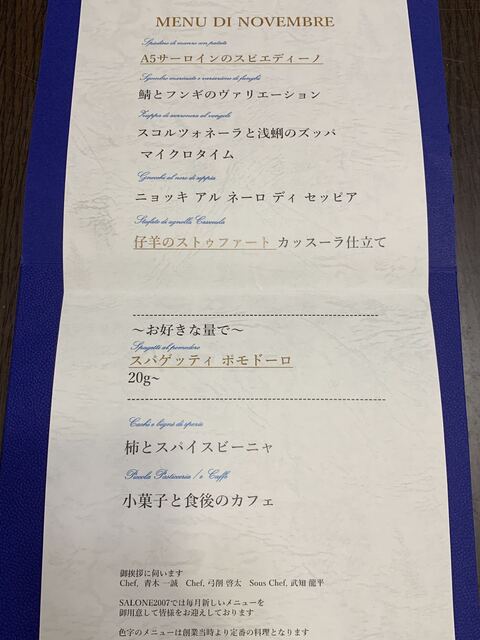 MENU DI NOVEMBRE
Spiedino di manzo con patate
A5サーロインのスピエディーノ
Sgombro marinato e variazione di funghi
鯖とフンギのヴァリエーション
Zuppa di scorzonera al vongole
スコルツォネーラと浅蜊のズッパ
マイクロタイム
Gnocchi al nero di seppia
ニョッキ アル ネーロ ディ セッピア
Stufato di agnello Cassoula
仔羊のストゥファート カッスーラ仕立て
〜お好きな量で〜
Spagetti al pomodoro
スパゲッティ ポモドーロ
20g~
Cachi e bigné di spezie
柿とスパイスビーニャ
Piccola Pasticceria / e Caffè
小菓子と食後のカフェ
御挨拶に伺います
Chef, 青木 一誠 Chef, 弓削 啓太 Sous Chef, 武知 龍平
SALONE2007では毎月新しいメニューを
御用意して皆様をお迎えしております
色字のメニューは創業当時より定番の料理となります